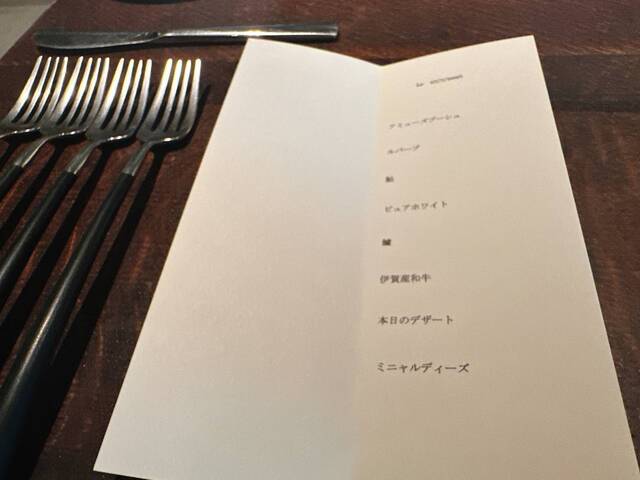 アミューズブーシュ
ルバーブ
鮎
ピュアホワイト
鱸
伊賀産和牛
本日のデザート
ミニャルディーズ